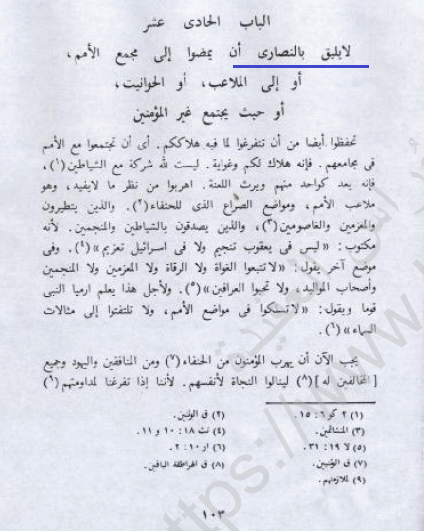 الباب الحادى عشر
لايليق بالنصارى أن يمضوا إلى مجمع الأمم،
أو إلى الملاعب، أو الحوانيت،
أو حيث يجتمع غير المؤمنين
تحفظوا أيضا من أن تتفرغوا لما فيه هلاككم. أى أن تجتمعوا مع الأمم
فى مجامعهم. فإنه هلاك لكم وغواية. ليست لله شركة مع الشياطين(١)،
فإنه يعد كواحد منهم ويرث اللعنة. اهربوا من نظر ما لايفيد، وهو
ملاعب الأمم، ومواضع الصراع الذى للحنفاء(٢). والذين يتطيرون
والمعزمين والغاصومين(٣)، والذين يصدقون بالشياطين والمنجمين. لأنه
مكتوب: «ليس فى يعقوب تنجيم ولا فى اسرائيل تعزيم»(٤). وفى
موضع آخر يقول: «لاتتبعوا الغواة ولا الرقاة ولا المعزمين ولا المنجمين
وأصحاب المواليد، ولا تحيوا العرافين»(٥). ولأجل هذا يعلم ارميا النبى
قوما ويقول: «لاتسلكوا فى مواضع الأمم، ولا تلتفتوا إلى مثالات
السماء»(٦).
يجب الآن أن يهرب المؤمنون من الحنفاء(٧) ومن المنافقين واليهود وجميع
[المخالفين له](٨) لينالوا النجاة لأنفسهم. لأننا إذا تفرغنا لمداومتهم(٦)
(١) ٢ كو ٦: ١٥.
(٢) ق الوثنيين.
(٣) المتشائمين.
(٤) تث ١٨: ١٠ و ١١.
(٥) لا ١٩: ٣١.
(٦) ار ١٠: ٢.
(٧) ق الوثنيين.
(٨) ق الهراطقة الباقين.
(٩) لملازمتهم.
١٠٣
https://www.